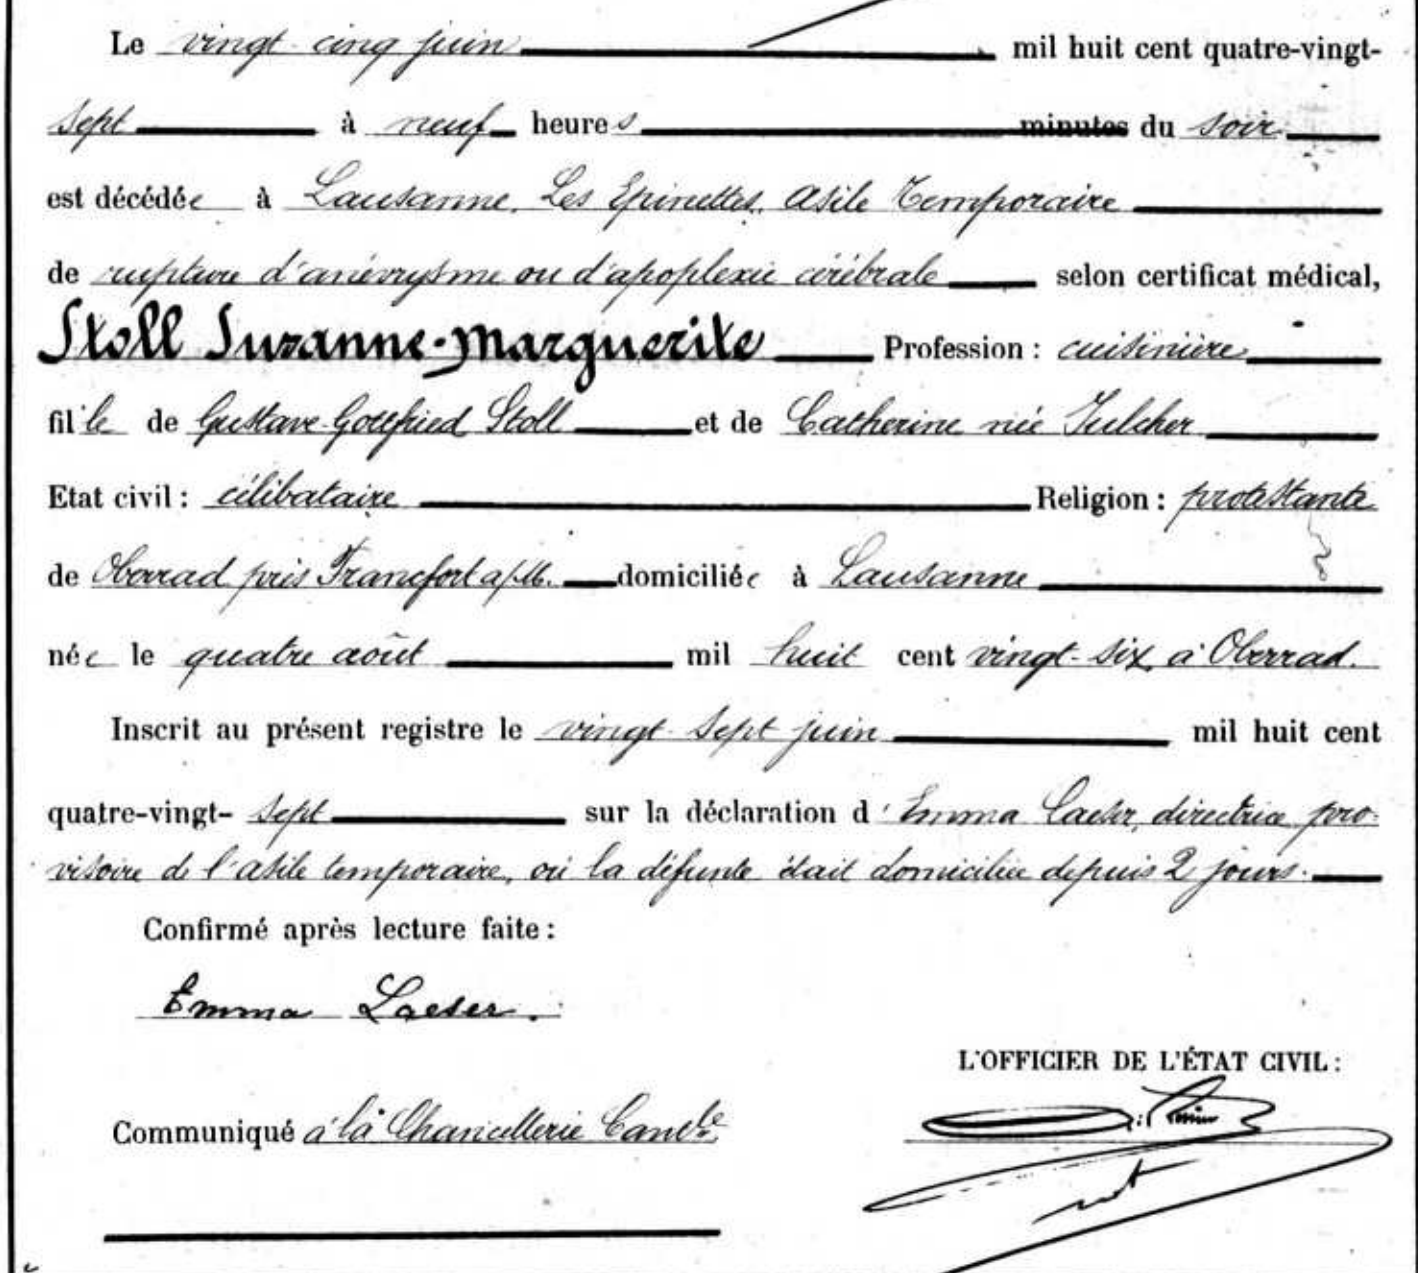 Le vingt-cinq juin mil huit cent quatre-vingt-
sept à neuf heures minutes du soir
est décédée à Lausanne, Les Epinettes, Asile Temporaire
de rupture d'anévrysme ou d'apoplexie cérébrale selon certificat médical,
Stoll Suzanne-Marguerite Profession : cuisinière
fille de Gustave-Gottfried Stoll et de Catherine née
Etat civil : célibataire Religion : protestante
de Oberrad près Francfort a/M. domiciliée à Lausanne
née le quatre août mil huit cent vingt-six à Oberrad.
Inscrit au présent registre le vingt-sept juin mil huit cent
quatre-vingt- sept sur la déclaration d'Emma Laeser, directrice pro-
visoire de l'asile temporaire, où la défunte était domiciliée depuis 2 jours.
Confirmé après lecture faite :
Emma Laeser.
L'OFFICIER DE L'ÉTAT CIVIL :
Communiqué à la Chancellerie Cantle